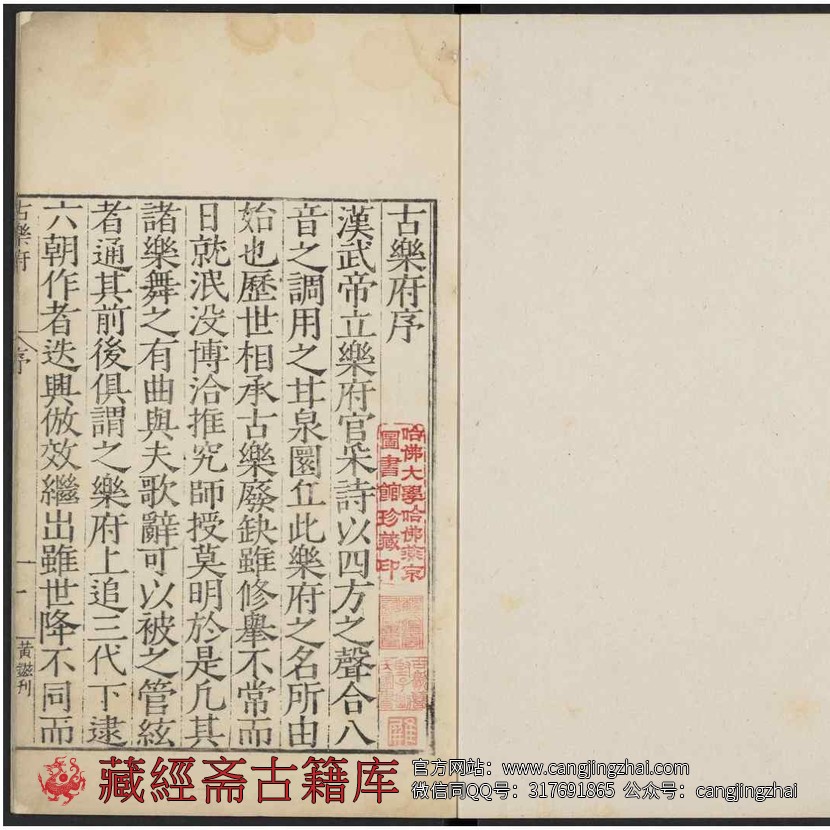 古樂府序
漢武帝立樂府官采詩以四方之聲合八
音之調用之甘泉圜丘此樂府之名所由
始也歷世相承古樂廢缺雖修舉不常而
日就泯没博洽推究師授莫明於是凡其
諸樂舞之有曲與夫歌辭可以被之管絃
者通其前後俱謂之樂府上追三代下逮
六朝作者迭興倣效繼出雖世降不同而
古樂府
序
一
刊
哈佛大學哈佛燕京
圖書館珍藏印
藏經斋古籍库
官方网站：www.cangjingzhai.com
微信同QQ号：317691865 公众号：cangjingzhai